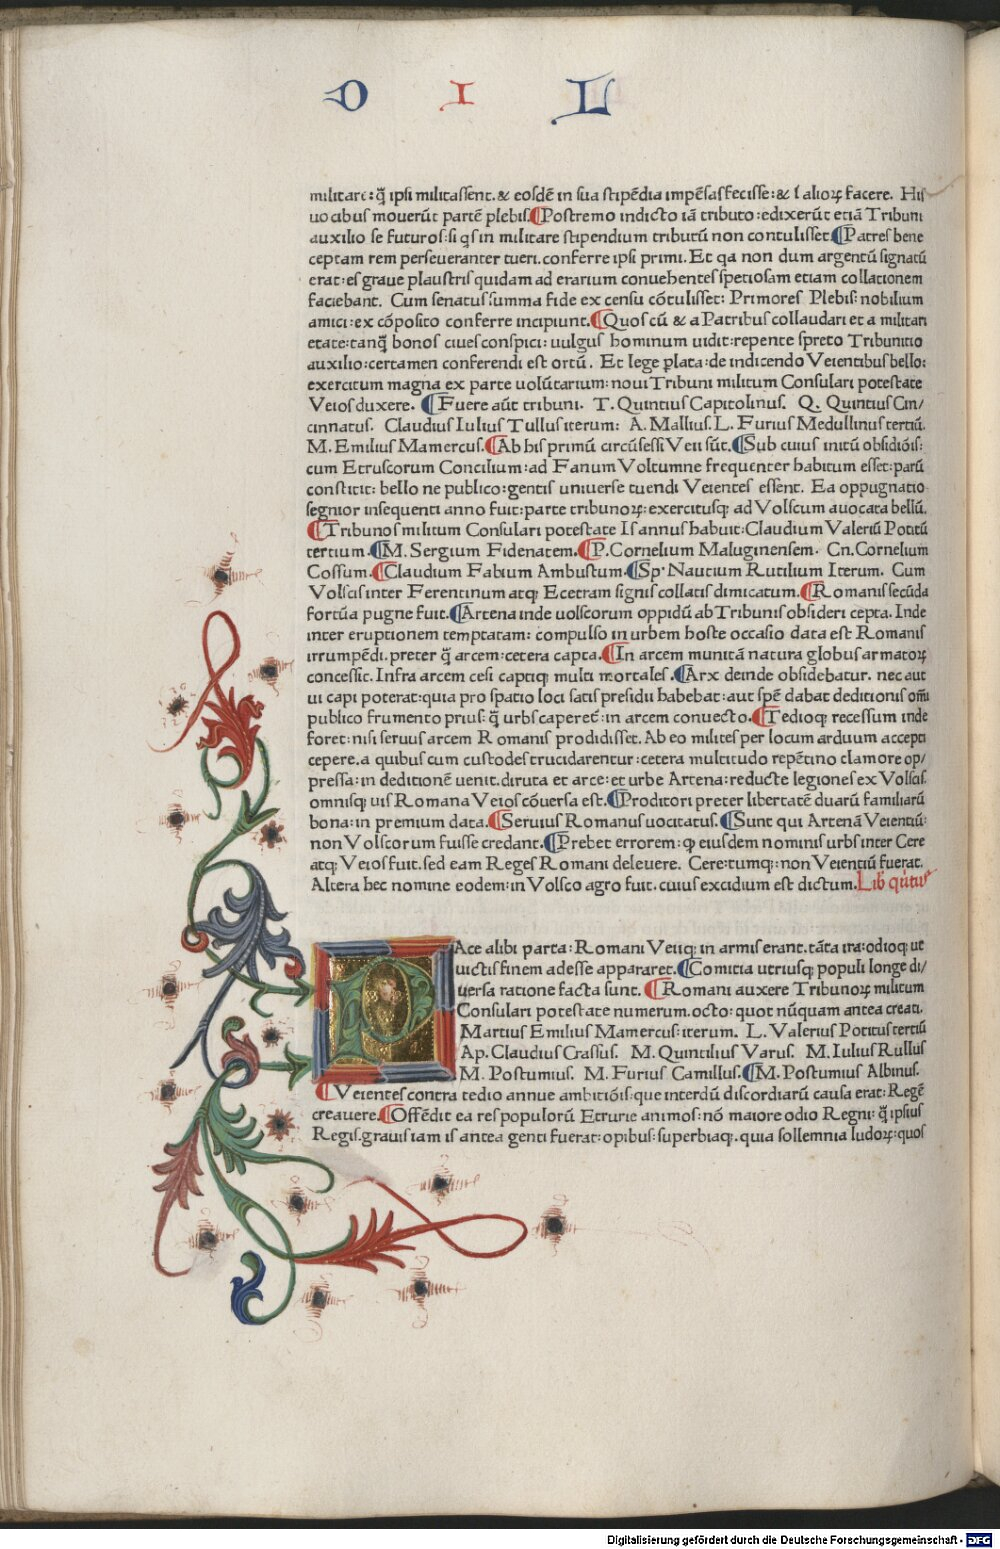 D I L
militare: q̃ ipsi militassent. & eosdē in sua stipēdia impēsas fecisse: & ł alioꝝ facere. His
uocibus mouerūt partē plebis. ¶Postremo indicto iā tributo: edixerūt etiā Tribuni
auxilio se futuros: si qs in militare stipendium tributū non contulisset ¶Patres bene
ceptam rem perseueranter tueri. conferre ipsi primi. Et qa non dum argentū signatū
erat: es graue plaustris quidam ad erarium conuehentes spetiosam etiam collationem
faciebant. Cum senatus summa fide ex censu cōtulisset: Primores Plebis: nobilium
amici: ex cōposito conferre incipiunt. ¶Quos cū & a Patribus collaudari et a militari
etate: tanq̃ bonos ciues conspici: uulgus hominum uidit: repente spreto Tribunitio
auxilio: certamen conferendi est ortū. Et lege ꝑlata: de indicendo Veientibus bello:
exercitum magna ex parte uolūtarium: noui Tribuni militum Consulari potestate
Veios duxere. ¶Fuere aūt tribuni. T. Quintius Capitolinus. Q. Quintius Cin/
cinnatus. Claudius Iulius Tullus iterum: A. Mallius. L. Furius Medullinus tertiū.
M. Emilius Mamercus. ¶Ab his primū circūsessi Veii sūt. ¶Sub cuius initū obsidiōis:
cum Etruscorum Concilium: ad Fanum Voltumne frequenter habitum esset: parū
constitit: bello ne publico: gentis uniuerse tuendi Veientes essent. Ea oppugnatio
segnior insequenti anno fuit: parte tribunoꝝ: exercitusq; ad Volscum auocata bellū.
¶Tribunos militum Consulari potestate Is annus habuit: Claudium Valeriū Potitū
tertium. ¶M. Sergium Fidenatem. ¶P. Cornelium Maluginensem. Cn. Cornelium
Cossum. ¶Claudium Fabium Ambustum. ¶Sp. Nautium Rutilium Iterum. Cum
Volscis inter Ferentinum atq; Ecetram signis collatis dimicatum. ¶Romanis secūda
fortūa pugne fuit. ¶Artena inde uolscorum oppidū ab Tribunis obsideri cepta. Inde
inter eruptionem temptatam: compulso in urbem hoste occasio data est Romanis
irrumpēdi. preter q̃ arcem: cetera capta. ¶In arcem munitā natura globus armatoꝝ
concessit. Infra arcem cesi captiq; multi mortales. ¶Arx deinde obsidebatur. nec aut
ui capi poterat: quia pro spatio loci satis presidii habebat: aut spē dabat deditionis om̄i
publico frumento prius: q̃ urbs caperet̃: in arcem conuecto. ¶Tedioq; recessum inde
foret: nisi seruus arcem Romanis prodidisset. Ab eo milites per locum arduum accepti
cepere. a quibus cum custodes trucidarentur: cetera multitudo repētino clamore op/
pressa: in deditionē uenit. diruta et arce: et urbe Artena: reducte legiones ex Volscis.
omnisq; uis Romana Veios cōuersa est. ¶Proditori preter libertatē duarū familiarū
bona: in premium data. ¶Seruius Romanus uocitatus. ¶Sunt qui Artenā Veientiū:
non Volscorum fuisse credant. ¶Prebet errorem: ꝙ eiusdem nominis urbs inter Cere
atq; Veios fuit. sed eam Reges Romani deleuere. Cere: tumq;: non Veientiū fuerat.
Altera hec nomine eodem: in Volsco agro fuit. cuius excidium est dictum. Lib qūtus
PAce alibi parta: Romani Veiiq; in armis erant. tāta ira: odioq; ut
uictis finem adesse appararet. ¶Comitia utriusq; populi longe di/
uersa ratione facta sunt. ¶Romani auxere Tribunoꝝ militum
Consulari potestate numerum. octo: quot nūquam antea creati.
Martius Emilius Mamercus: iterum. L. Valerius Potitus tertiū
Ap. Claudius Crassus. M. Quintilius Varus. M. Iulius Rullus
M. Postumius. M. Furius Camillus. ¶M. Postumius Albinus.
¶Veientes contra tedio annue ambitiōis: que interdū discordiarū causa erat: Regē
creauere. ¶Offēdit ea res populorū Etrurie animos: nō maiore odio Regni: q̃ ipsius
Regis. grauis iam is antea genti fuerat: opibus: superbiaq;. quia sollemnia ludoꝝ: quos
Digitalisierung gefördert durch die Deutsche Forschungsgemeinschaft - DFG